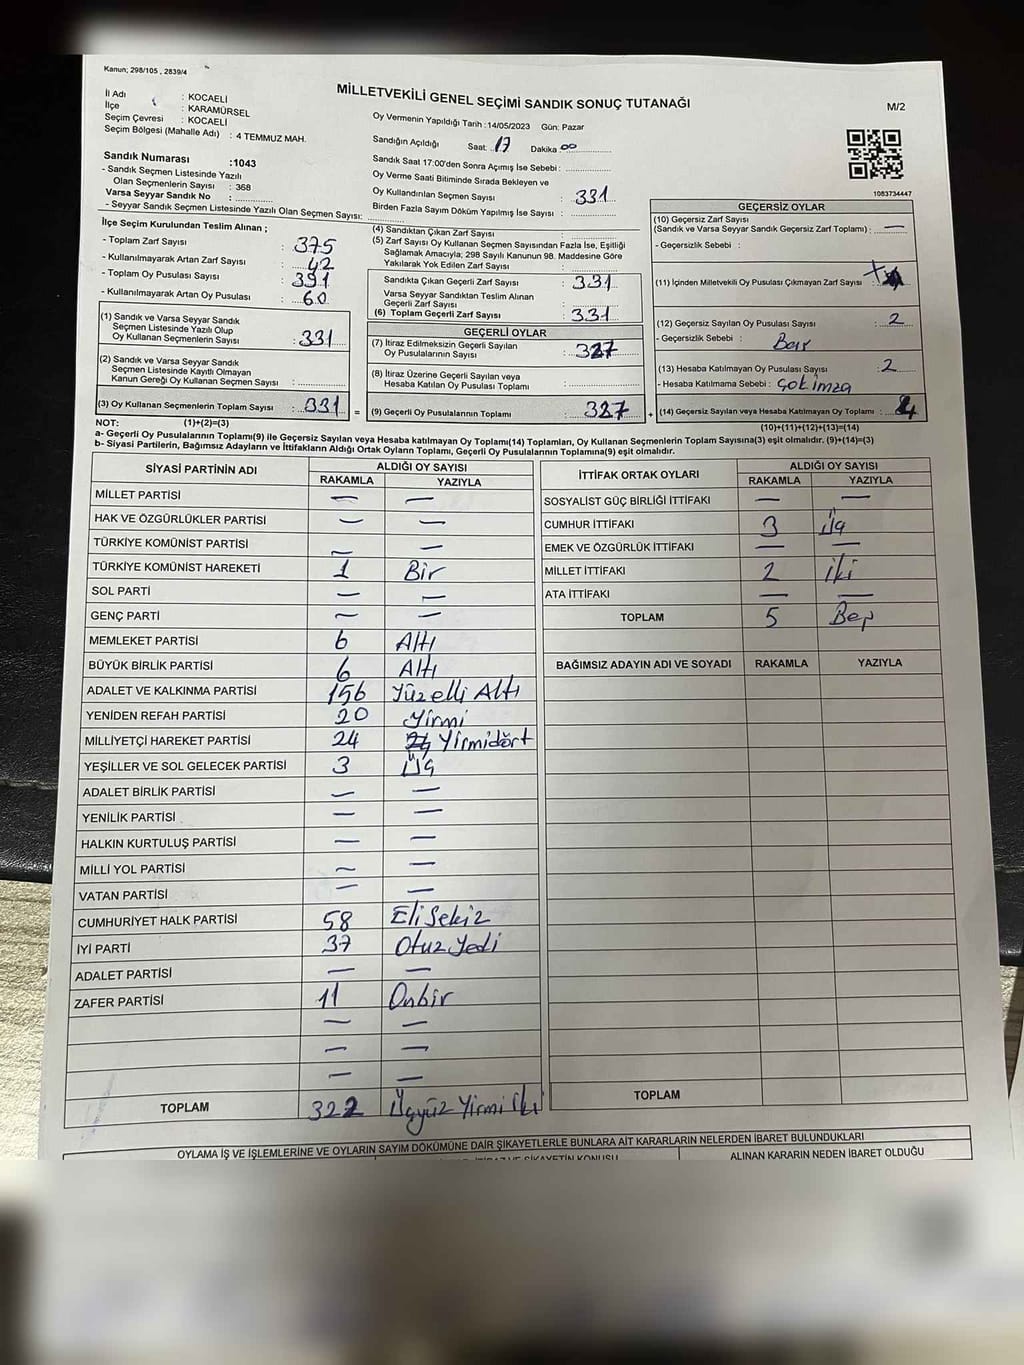 Kanun; 298/105 , 2839/4
MİLLETVEKİLİ GENEL SEÇİMİ SANDIK SONUÇ TUTANAĞI
M/2
İl Adı : KOCAELİ
İlçe : KARAMÜRSEL
Seçim Çevresi : KOCAELİ
Seçim Bölgesi (Mahalle Adı) : 4 TEMMUZ MAH.
Sandık Numarası :1043
- Sandık Seçmen Listesinde Yazılı
Olan Seçmenlerin Sayısı : 368
Varsa Seyyar Sandık No :
- Seyyar Sandık Seçmen Listesinde Yazılı Olan Seçmen Sayısı:
Oy Vermenin Yapıldığı Tarih :14/05/2023 Gün: Pazar
Sandığın Açıldığı Saat: 17 Dakika 00
Sandık Saat 17:00'den Sonra Açımış İse Sebebi :
Oy Verme Saati Bitiminde Sırada Bekleyen ve
Oy Kullandırılan Seçmen Sayısı : 331
Birden Fazla Sayım Döküm Yapılmış İse Sayısı :
1083734447
İlçe Seçim Kurulundan Teslim Alınan ;
- Toplam Zarf Sayısı : 375
- Kullanılmayarak Artan Zarf Sayısı : 42
- Toplam Oy Pusulası Sayısı : 391
- Kullanılmayarak Artan Oy Pusulası : 60
(1) Sandık ve Varsa Seyyar Sandık
Seçmen Listesinde Yazılı Olup
Oy Kullanan Seçmenlerin Sayısı : 331
(2) Sandık ve Varsa Seyyar Sandık
Seçmen Listesinde Kayıtlı Olmayan
Kanun Gereği Oy Kullanan Seçmen Sayısı :
(3) Oy Kullanan Seçmenlerin Toplam Sayısı : 331
(4) Sandıktan Çıkan Zarf Sayısı :
(5) Zarf Sayısı Oy Kullanan Seçmen Sayısından Fazla İse, Eşitliği
Sağlamak Amacıyla; 298 Sayılı Kanunun 98. Maddesine Göre
Yakılarak Yok Edilen Zarf Sayısı :
Sandıkta Çıkan Geçerli Zarf Sayısı : 331
Varsa Seyyar Sandıktan Teslim Alınan
Geçerli Zarf Sayısı :
(6) Toplam Geçerli Zarf Sayısı : 331
GEÇERLİ OYLAR
(7) İtiraz Edilmeksizin Geçerli Sayılan
Oy Pusulalarının Sayısı : 327
(8) İtiraz Üzerine Geçerli Sayılan veya
Hesaba Katılan Oy Pusulası Toplamı :
= (9) Geçerli Oy Pusulalarının Toplamı : 327 +
GEÇERSİZ OYLAR
(10) Geçersiz Zarf Sayısı
(Sandık ve Varsa Seyyar Sandık Geçersiz Zarf Toplamı) : —
- Geçersizlik Sebebi :
(11) İçinden Milletvekili Oy Pusulası Çıkmayan Zarf Sayısı :
(12) Geçersiz Sayılan Oy Pusulası Sayısı : 2
- Geçersizlik Sebebi :
(13) Hesaba Katılmayan Oy Pusulası Sayısı : 2
- Hesaba Katılmama Sebebi : Çok imza
(14) Geçersiz Sayılan veya Hesaba Katılmayan Oy Toplamı : 4
NOT: (1)+(2)=(3)
(10)+(11)+(12)+(13)=(14)
a- Geçerli Oy Pusulalarının Toplamı(9) ile Geçersiz Sayılan veya Hesaba katılmayan Oy Toplamı(14) Toplamları, Oy Kullanan Seçmenlerin Toplam Sayısına(3) eşit olmalıdır. (9)+(14)=(3)
b- Siyasi Partilerin, Bağımsız Adayların ve İttifakların Aldığı Ortak Oyların Toplamı, Geçerli Oy Pusulalarının Toplamına(9) eşit olmalıdır.
SİYASİ PARTİNİN ADI ALDIĞI OY SAYISI
RAKAMLA YAZIYLA
MİLLET PARTİSİ — —
HAK VE ÖZGÜRLÜKLER PARTİSİ — —
TÜRKİYE KOMÜNİST PARTİSİ — —
TÜRKİYE KOMÜNİST HAREKETİ 1 Bir
SOL PARTİ — —
GENÇ PARTİ — —
MEMLEKET PARTİSİ 6 Altı
BÜYÜK BİRLİK PARTİSİ 6 Altı
ADALET VE KALKINMA PARTİSİ 156 Yüzelli Altı
YENİDEN REFAH PARTİSİ 20 Yirmi
MİLLİYETÇİ HAREKET PARTİSİ 24 Yirmidört
YEŞİLLER VE SOL GELECEK PARTİSİ 3 Üç
ADALET BİRLİK PARTİSİ — —
YENİLİK PARTİSİ — —
HALKIN KURTULUŞ PARTİSİ — —
MİLLİ YOL PARTİSİ — —
VATAN PARTİSİ — —
CUMHURİYET HALK PARTİSİ 58 Elisekiz
İYİ PARTİ 37 Otuz Yedi
ADALET PARTİSİ — —
ZAFER PARTİSİ 11 Onbir
— —
— —
— —
TOPLAM 322 Üçyüz Yirmi iki
İTTİFAK ORTAK OYLARI ALDIĞI OY SAYISI
RAKAMLA YAZIYLA
SOSYALİST GÜÇ BİRLİĞİ İTTİFAKI — —
CUMHUR İTTİFAKI 3 Üç
EMEK VE ÖZGÜRLÜK İTTİFAKI — —
MİLLET İTTİFAKI 2 iki
ATA İTTİFAKI — —
TOPLAM 5 Beş
BAĞIMSIZ ADAYIN ADI VE SOYADI RAKAMLA YAZIYLA
TOPLAM
OYLAMA İŞ VE İŞLEMLERİNE VE OYLARIN SAYIM DÖKÜMÜNE DAİR ŞİKAYETLERLE BUNLARA AİT KARARLARIN NELERDEN İBARET BULUNDUKLARI
ALINAN KARARIN NEDEN İBARET OLDUĞU